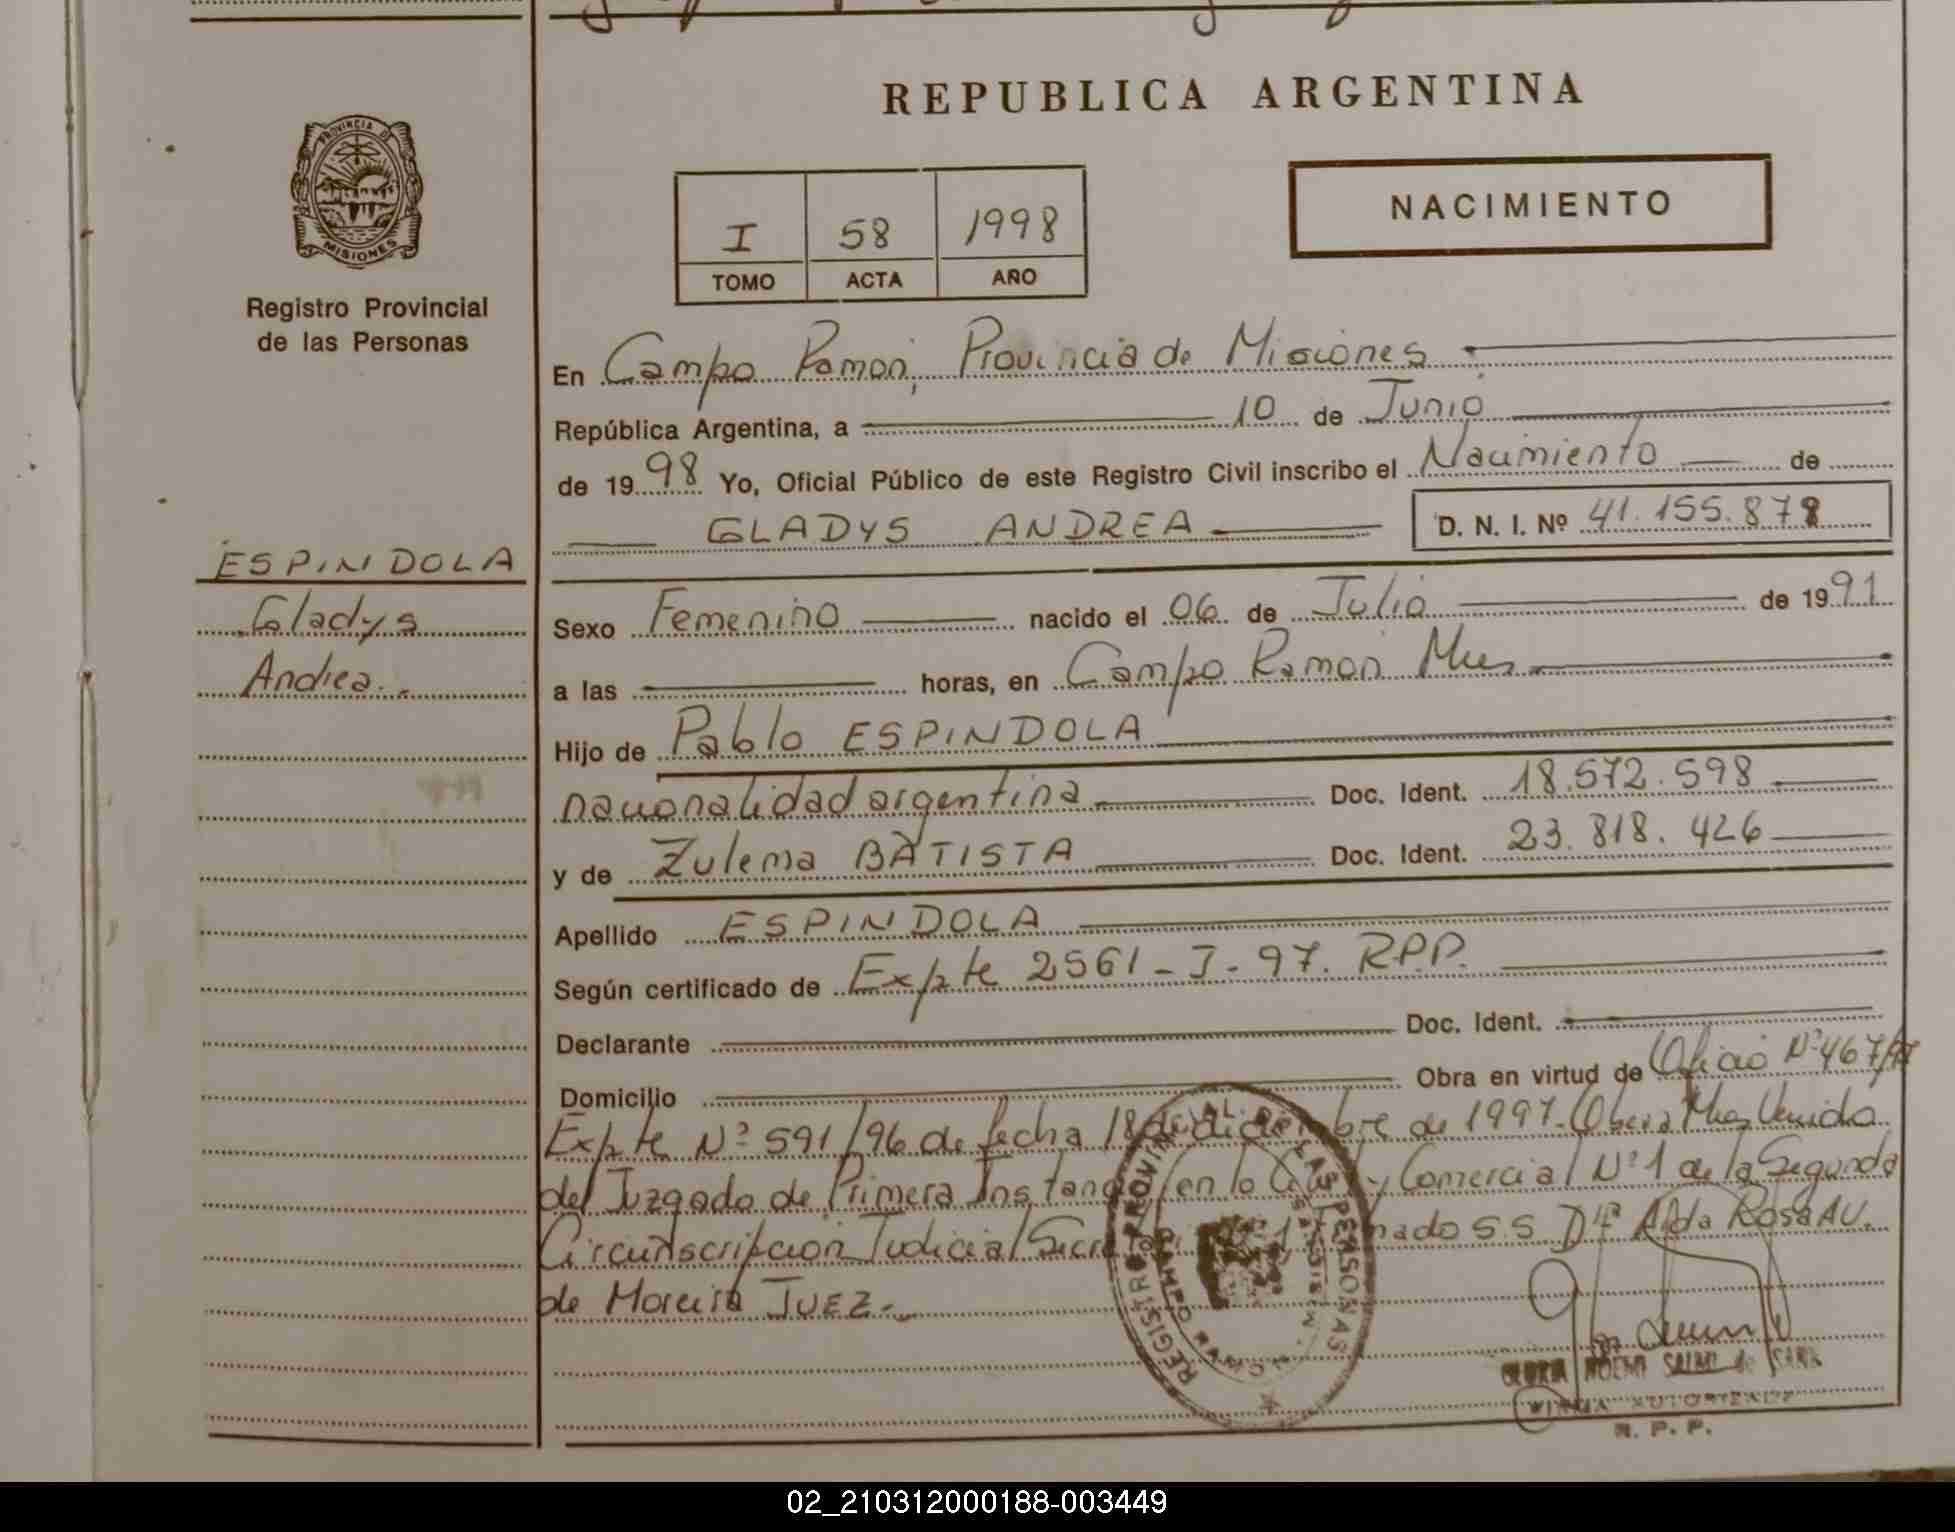 REPUBLICA ARGENTINA
PROVINCIA DE MISIONES
Registro Provincial
de las Personas
I 58 1998
TOMO ACTA AÑO
NACIMIENTO
En Campo Ramon, Provincia de Misiones
República Argentina, a 10 de Junio
de 1998 Yo, Oficial Público de este Registro Civil inscribo el Nacimiento de
GLADYS ANDREA D. N. I. Nº 41.155.878
ESPINDOLA
Gladys
Andrea.
Sexo Femenino nacido el 06 de Julio de 1991
a las horas, en Campo Ramon Mnes
Hijo de Pablo ESPINDOLA
nacionalidad argentina Doc. Ident. 18.572.598
y de Zulema BATISTA Doc. Ident. 23.818.426
Apellido ESPINDOLA
Según certificado de Expte 2561-I-97. R.P.P.
Declarante Doc. Ident.
Domicilio Obra en virtud de Oficio Nº 467/97
Expte Nº 591/96 de fecha 18 de diciembre de 1997. Obera Mnes Venido
del Juzgado de Primera Instancia en lo Civil y Comercial Nº 1 de la Segunda
Circunscripcion Judicial Secretaria Nº 1 Firmado S.S. Drª Alda Rosa AV.
de Moreira JUEZ.-
REGISTRO PROVINCIAL DE LAS PERSONAS
CAMPO RAMON
MISIONES
GLORIA NOEMI
FIRMA AUTORIZADA
R. P. P.
02_210312000188-003449